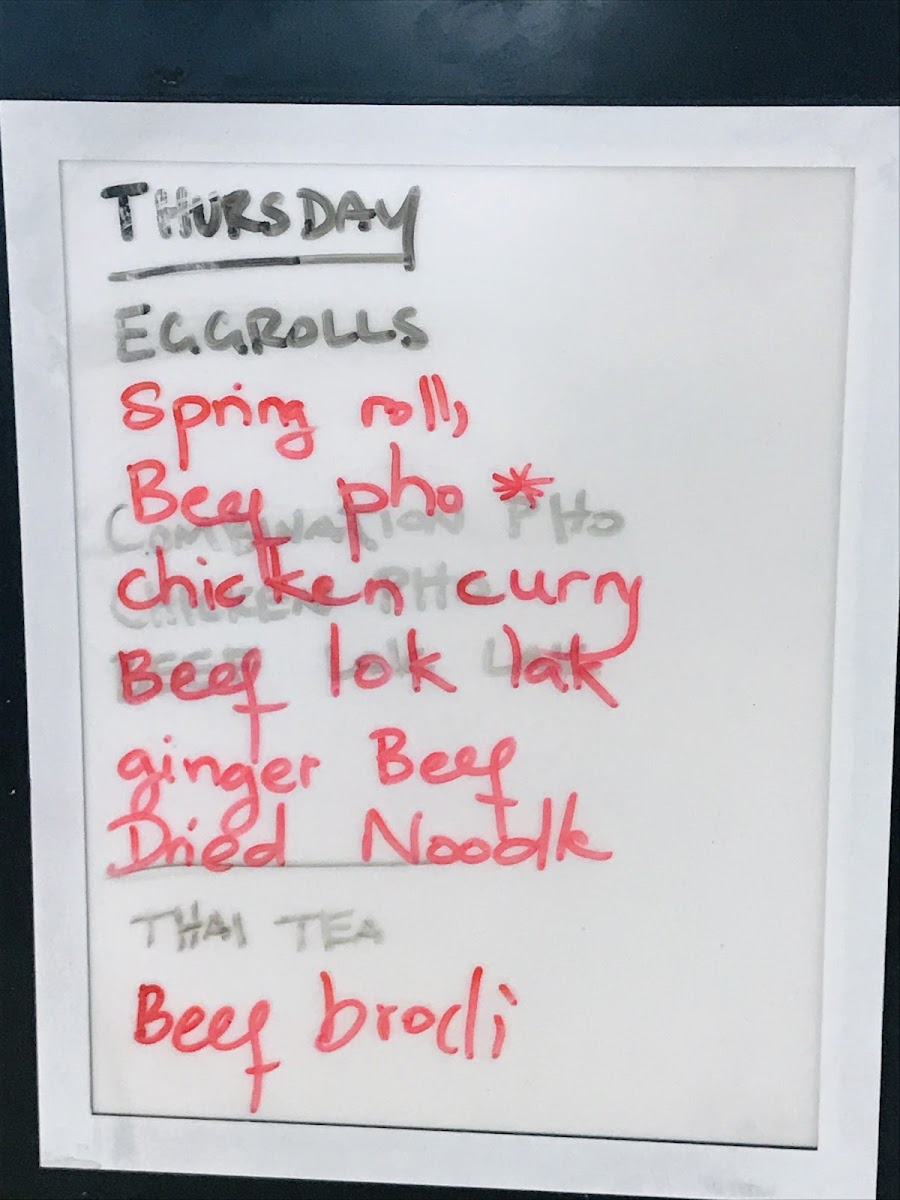 THURSDAY
EGGROLLS
Spring roll,
Beef pho *
COMBINATION PHO
chicken curry
CHICKEN PHO
Beef lok lak
BEEF LOK LAK
ginger Beef
Dried Noodle
THAI TEA
Beef brocli